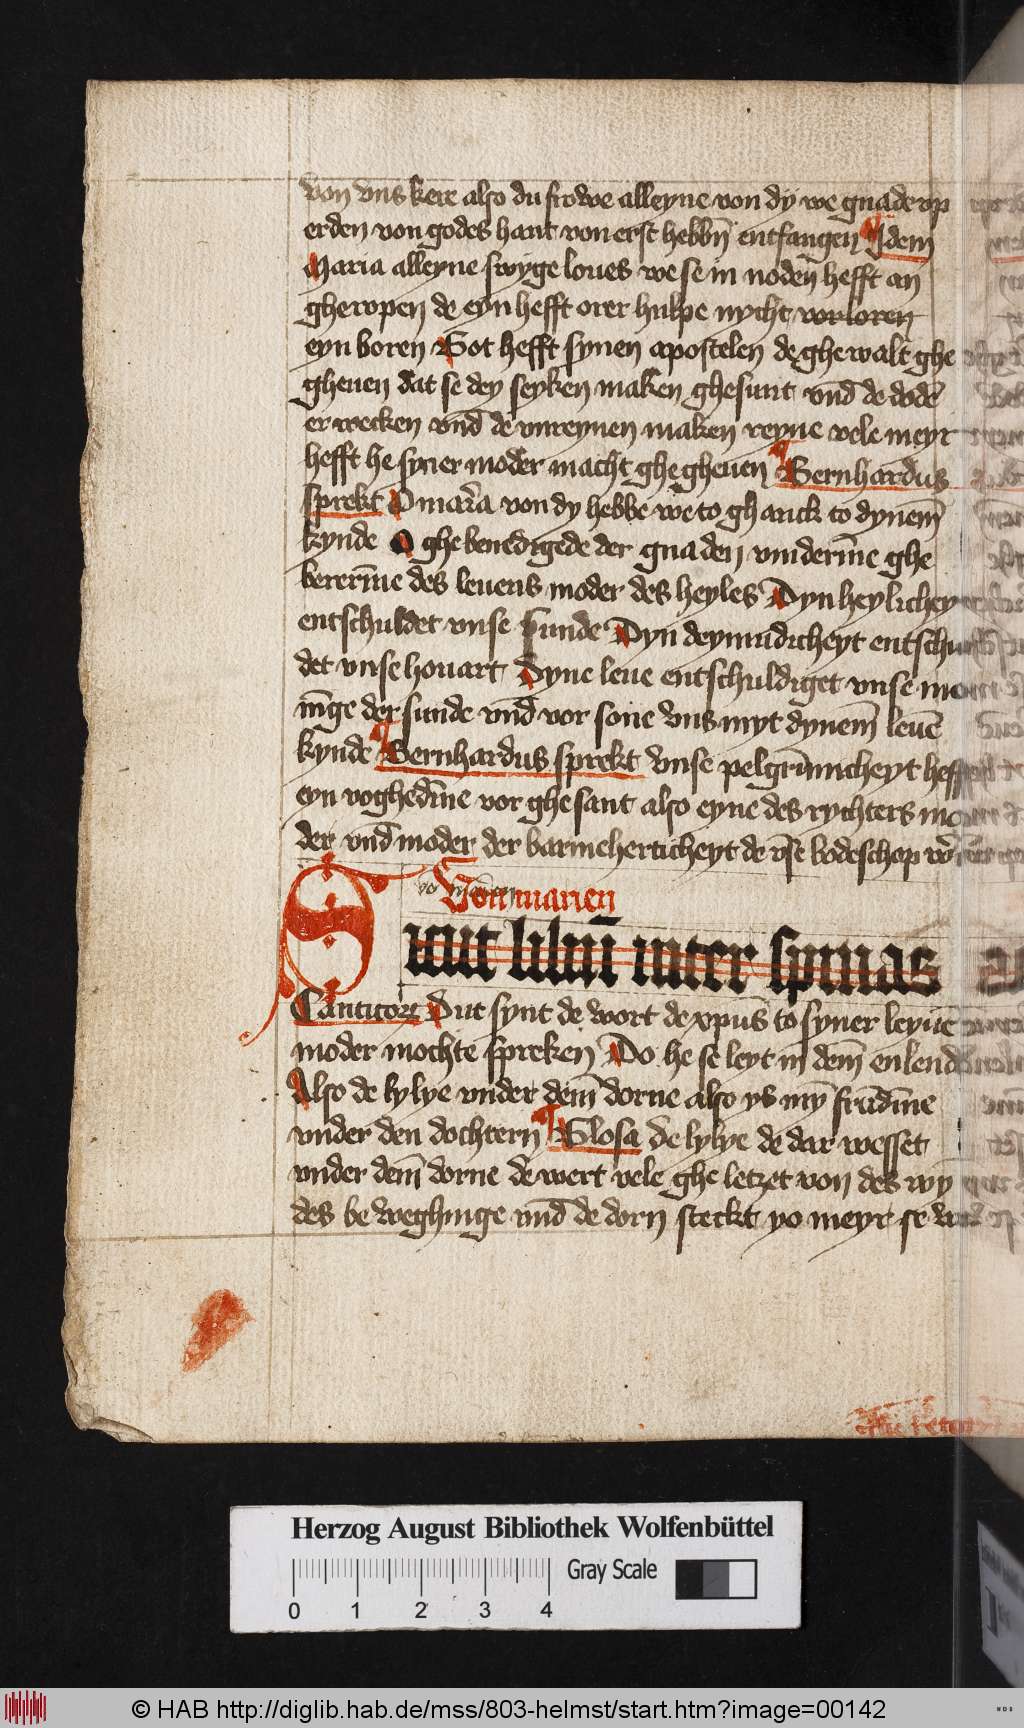 von vns kere also du frowe alleyne von dy we gnade vp
erden von godes hant von erst hebbn̄ entfangen Idem
Maria alleyne swyge loues we se in noden hefft an
gheropen de eyn hefft orer hulpe nycht vorloren
eyn boren Got hefft synen apostelen de ghewalt ghe
gheuen dat se dey seyken maken ghesunt vnd̄ de dodē
er wecken vnd̄ de vnreynen maken reyne vele meyr
hefft he syner moder macht ghegheuen Bernhardus
sprekt O mar̄a von dy hebbe we to ghanck to dynem̄
kynde O ghebenedigede der gnaden vinderīne ghe
bererīne des leuens moder des heyles Dyn heylichey
entschuldet vnse sunde Dyn deymudicheyt entschul
det vnse houart Dyne leue entschuldiget vnse
nīge der sunde vnd̄ vor sone vns myt dynem̄ leuē
kynde Bernhardus sprekt vnse pelgrīmicheyt heff
eyn voghedīne vor ghesant also eyne des rychters mo
der vnd̄ moder der barmeherticheyt de vse bodeschop
vo marien
Von marien
Sicut liliū inter spinas
Canticor Dut synt de wort de xpūs to syner leyue
moder mochte spreken Do he se leyt in dem̄ enlende
Also de lylye vnder dem̄ dorne also ys mȳ frūdīne
vnder den dochtern Glosa de lylye de dar wesset
vnder dem̄ dorne de wert vele ghe letzet von des wy
des be weghinge vnd̄ de dorn steckt yo meyr se
Herzog August Bibliothek Wolfenbüttel
Gray Scale
0 1 2 3 4
© HAB http://diglib.hab.de/mss/803-helmst/start.htm?image=00142